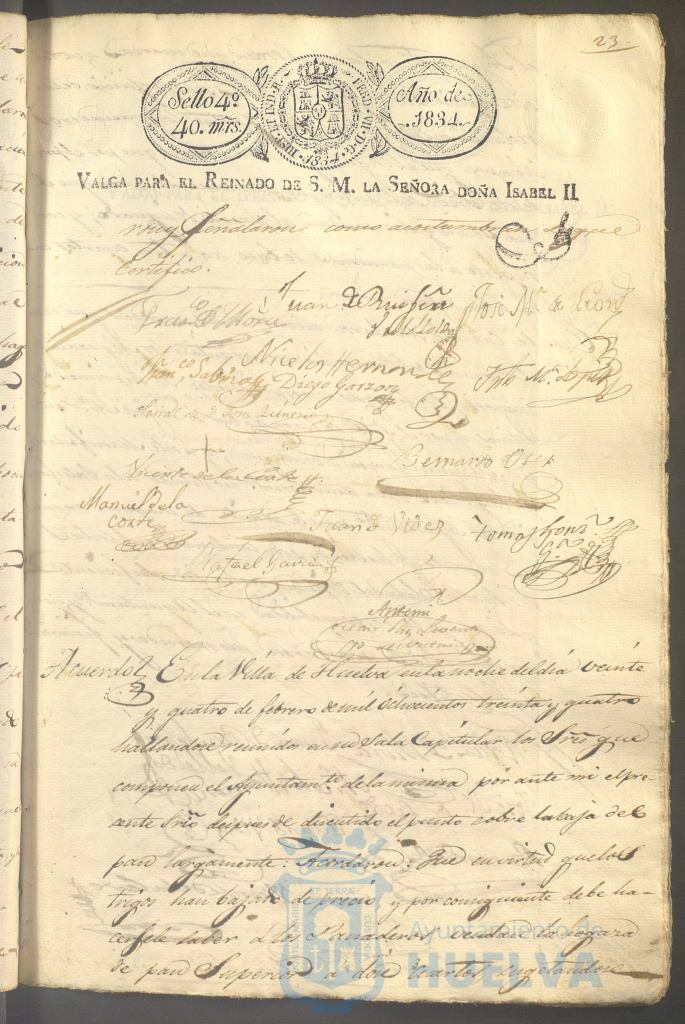 23
Sello 4º
40. mrs.
HISP. ET IND. R. FERD. VII. D. G.
1834
Año de
1834.
VALGA PARA EL REINADO DE S. M. LA SEÑORA DOÑA ISABEL II
y señalaron como acostumbran de que
certifico.
Juan de
José Mª de Leon
Nicolas Hernandez
Franco Diego Garzon
Señal de D. Jose
Vicente de la Corte
Bernardo
Manuel de la
Corte
Juan de Vides
Tomas
Rafael Garcia
Antemi
Acuerdo
En la Villa de Huelva en la noche del dia veinte
y quatro de febrero de mil ochocientos treinta y quatro
hallandose reunidos en su Sala Capitular los Sres que
componen el Ayuntamto de la misma por ante mi el pre
sente Srio despues de discutido el punto sobre la baja del
pan largamente: Acordaron: Que en virtud que los
trigos han bajado de precio y por consiguiente debe ha-
cersele saber a los Panaderos vendan la hogaza
de pan Superior a doce quartos sugetandose
Ayuntamiento de
HUELVA